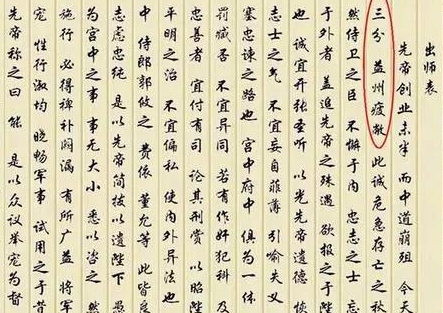 出师表
先帝创业未半 而中道崩殂 今天
三分 益州疲敝 此诚危急存亡之秋
然侍卫之臣 不懈于内 忠志之士 忘
于外者 盖追先帝之殊遇 欲报之于陛
也 诚宜开张圣听 以光先帝遗德 恢
志士之气 不宜妄自菲薄 引喻失义
塞忠谏之路也 宫中府中 俱为一体
罚臧否 不宜异同 若有作奸犯科 及
忠善者 宜付有司 论其刑赏 以昭陛
平明之治 不宜偏私 使内外异法也
中 侍郎郭攸之 费依 董允等 此皆良
志虑忠纯 是以先帝简拔以遗陛下 愚
为宫中之事 事无大小 悉以咨之 然
施行 必得裨补阙漏 有所广益 将军
宠 性行淑均 晓畅军事 试用之于昔
先帝称之曰 能 是以众议举宠为督